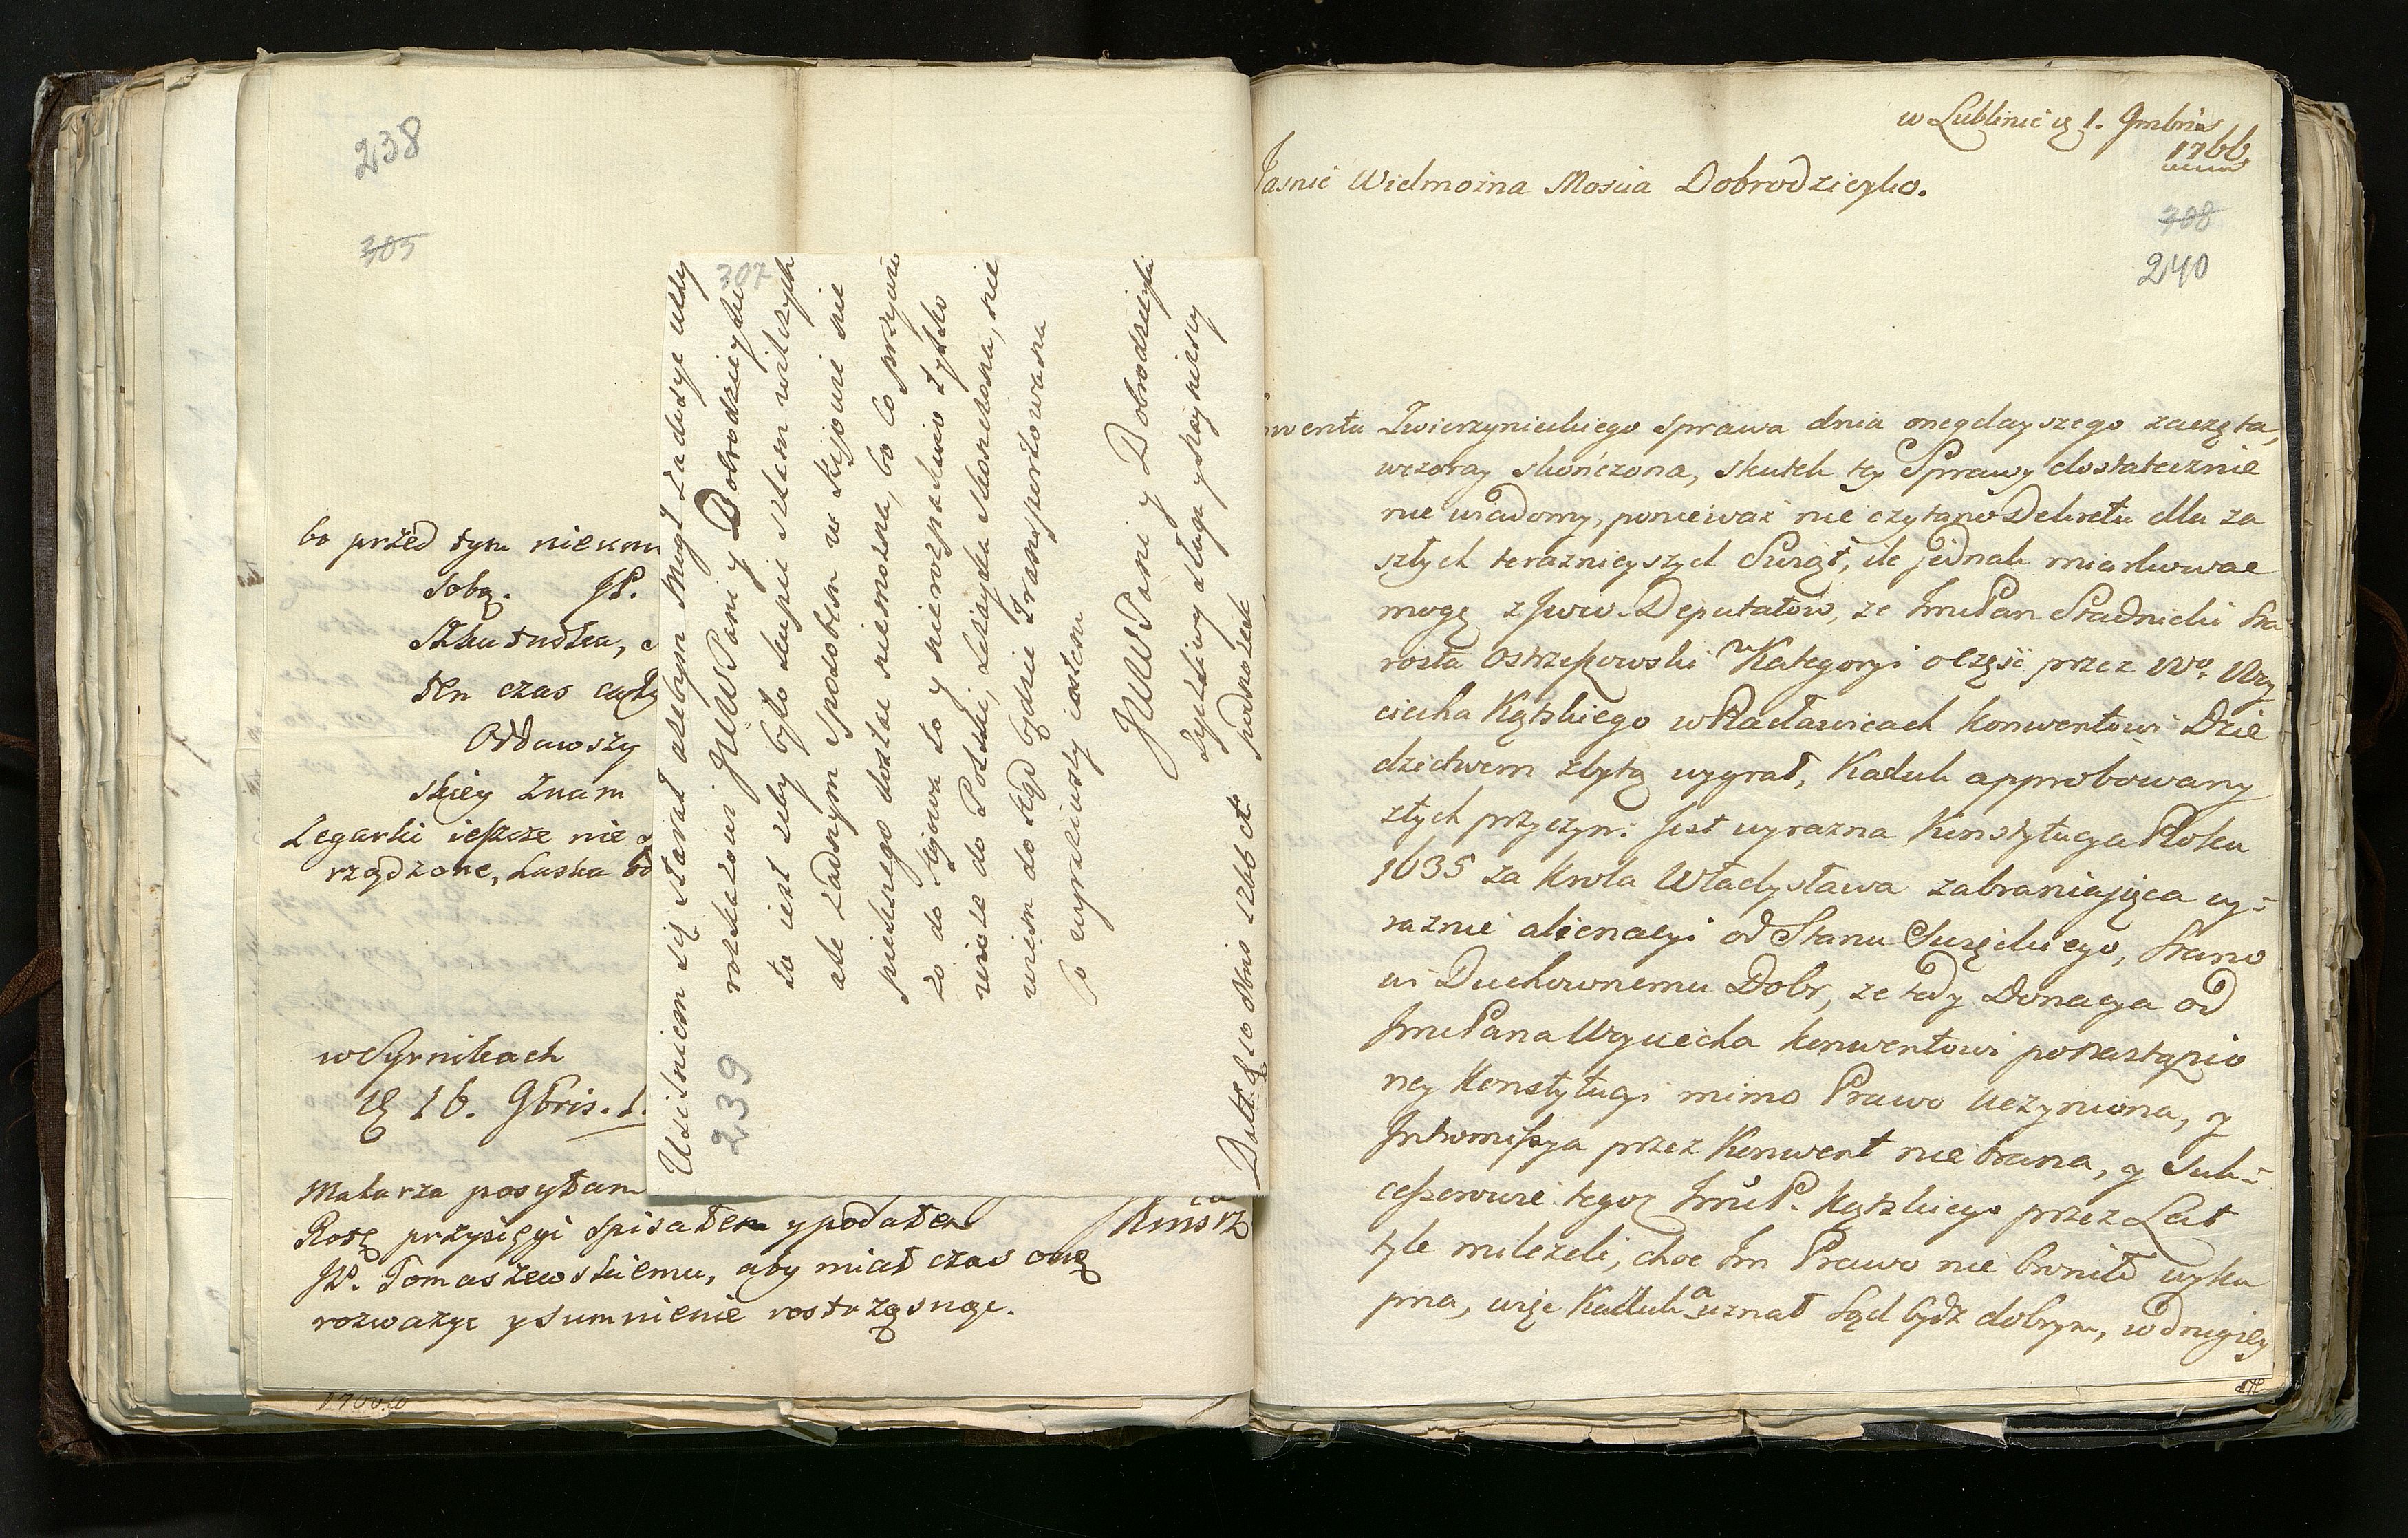 238
305
bo przed tym nieum
sobą. JP.
Szkatułka,
ten czas cały
Oddawszy
skiey Znam
Zegarki ieszcze nie
rządzone, Laska
w Syrnikach
16. 9bris. 1.
Malarza posyłam
Rotę przysięgi spisałem y podałem
JP. Tomaszewskiemu, aby miał czas onę
rozważyc y sumnienie rostrząsnąc.
1766.
307
239
Usilniem się starał ażebym mogł zadosyc
rozkazowi JWW Pani y Dobrodzieyki
to iest żeby było kupic sklem wilczych
ale żadnym sposobem w Kijowie nie
pieknego dostac niemozna, bo co przywio
zo do Kijowa to y nierozpakuio tylko
wieze do Polski, Lisayka kosztowna, nie
wiem do kąd będzie transportowana
Co wyraziwszy iestem
JWW Pani y Dobrodzieyki
Zyczliwy sługa y naynizszy
podnożek
10 1766
w Lublinie 1. 9mbris
1766
308
240
Jasnie Wielmożna Moscia Dobrodzieyko.
nwentu Zwierzynieckiego sprawa dnia onegdayszego zaczęta,
wczoray skończona, skutek tey Sprawy dostatecznie
nie wiadomy, ponieważ nie czytano Dekretu dla za
szłych teraznieyszych Swiąt, ile jednak miarkowac
mogę z Jww. Deputatow, że JmcPan Stadnicki Sta
rosta Ostrzeszowski w Kategoryi o częsć przez Wo. Woy
ciecha Kątskiego w Racławicach konwentowi Dzie
dzictwem zbytą wygrał, Kaduk approbowany
z tych przyczyn: Jest wyrazna Konstytucya Roku
1635 za Krola Władysława zabraniaiąca wy=
raznie alienacyi od Stanu Swięckiego, Stano
wi Duchownemu Dobr, że tedy Donacya od
JmcPana Woyciecha konwentowi po nastąpio
ney Konstytucyi mimo Prawo uczyniona, y
Intromissya przez Konwent nie brana, y Suk=
cessorowie tegoz JmćP. Kątskiego przez Lat
tyle milczeli, choc Im Prawo nie broniło wyku
pna, więc Kaduka uznał Sąd bydz dobrym, w drugiey